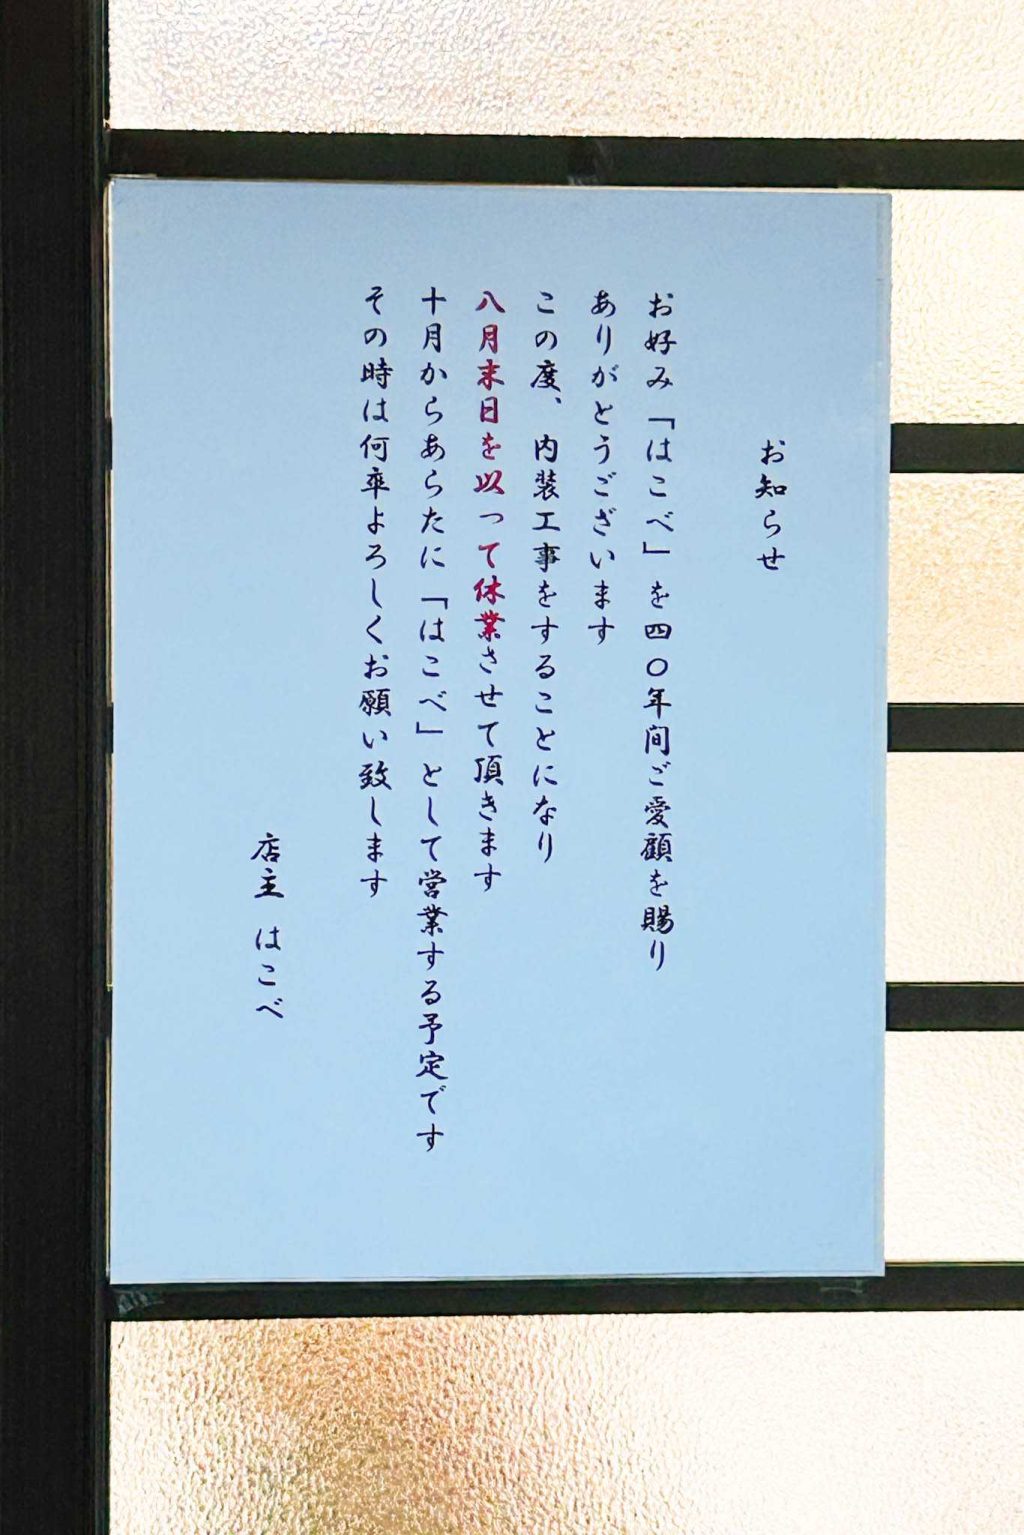 お知らせ
お好み「はこべ」を四〇年間ご愛顧を賜り
ありがとうございます
この度、内装工事をすることになり
八月末日を以って休業させて頂きます
十月からあらたに「はこべ」として営業する予定です
その時は何卒よろしくお願い致します
店主 はこべ